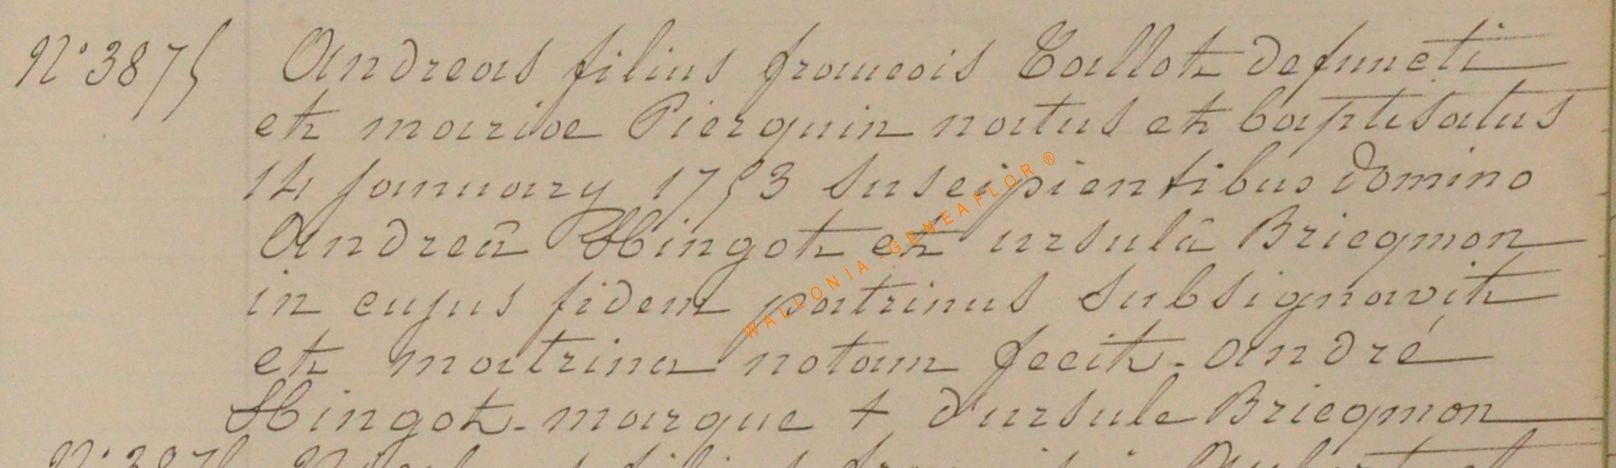 N° 3875 Andreas filius francois Collot defuncti
et mariae Pierquin natus et baptisatus
14 january 1753 suscipientibus domino
Andreâ Hingot et ursulâ Briegmon
in cujus fidem patrinus subsignavit
et matrina notam fecit. andré
Hingot. marque + d'ursule Briegmon
WALLONIA-GENEAFLOR ®